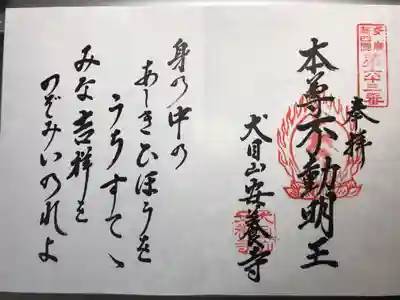 第六十三番
奉拝
本尊不動明王
犬目山安養寺
身の中の
あしきひほうを
うちすてゝ
みな吉祥を
のぞみいのれよ